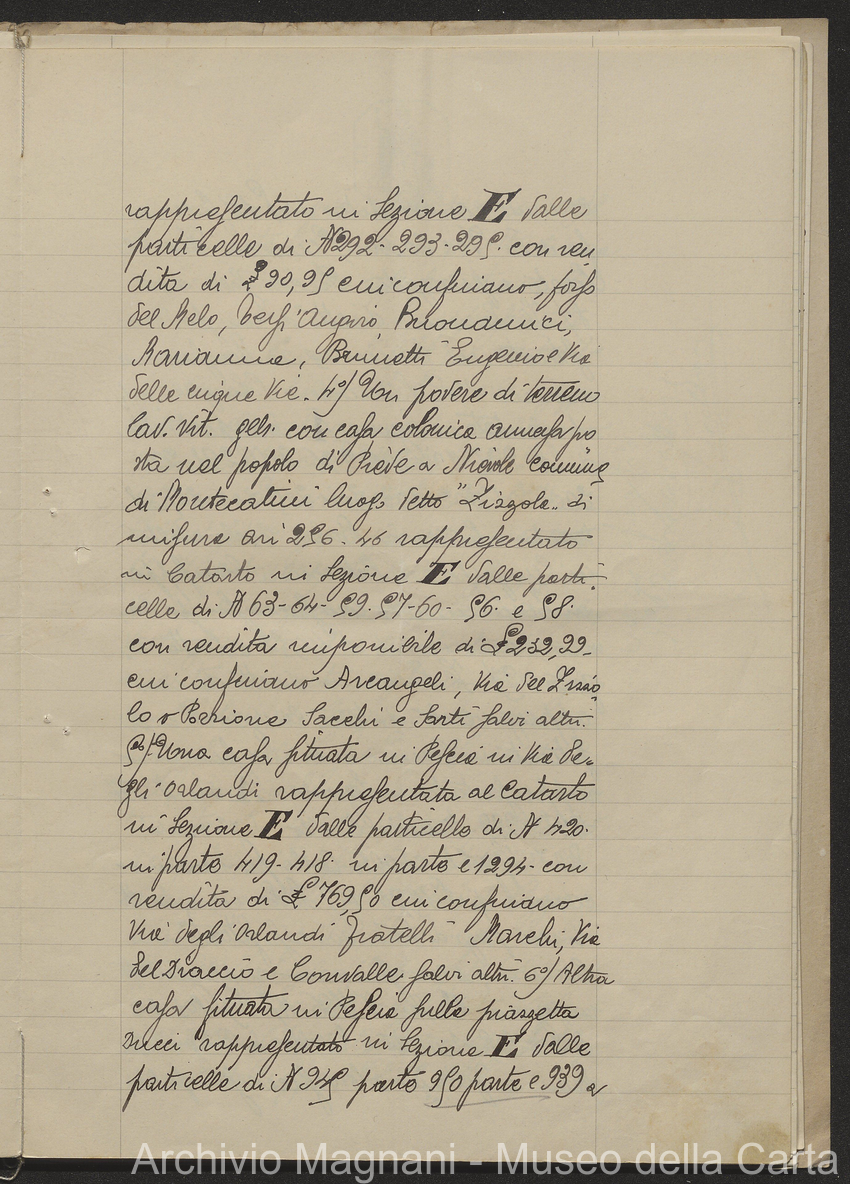 rappresentato in Sezione E dalle
particelle di N 292- 293- 295. con ren
dita di £ 90,95 cui confinano, fosso
del Melo, Buonamici,
Marianna, Brunetti Eugenio e Via
delle cinque Vie. 4°/ Un podere di terreno
lav. vit. gels. con casa colonica annessa po
sta nel popolo di Pieve a Nievole comune
di Montecatini luogo detto "Ziagola" di
misura ari 256. 46 rappresentato
in Catasto in Sezione E dalle parti-
celle di N 63- 64- 59. 57- 60- 56. e 58.
con rendita imponibile di £ 232,99-
cui confinano Arcangeli, Via del
lo o Sacchi e Sarti salvi altri.
5°/ Una casa situata in Pescia in Via De-
gli Orlandi rappresentata al Catasto
in Sezione E dalle particelle di N 420.
in parte 419- 418. in parte e 1294- con
rendita di £ 769,50 cui confinano
Via degli Orlandi fratelli Marchi, Via
del e Convalle salvi altri. 6°/ Altra
casa situata in Pescia sulla piazzetta
Ducci rappresentata in Sezione E dalle
particelle di N 945 parte 950 parte e 939 a
Archivio Magnani - Museo della Carta